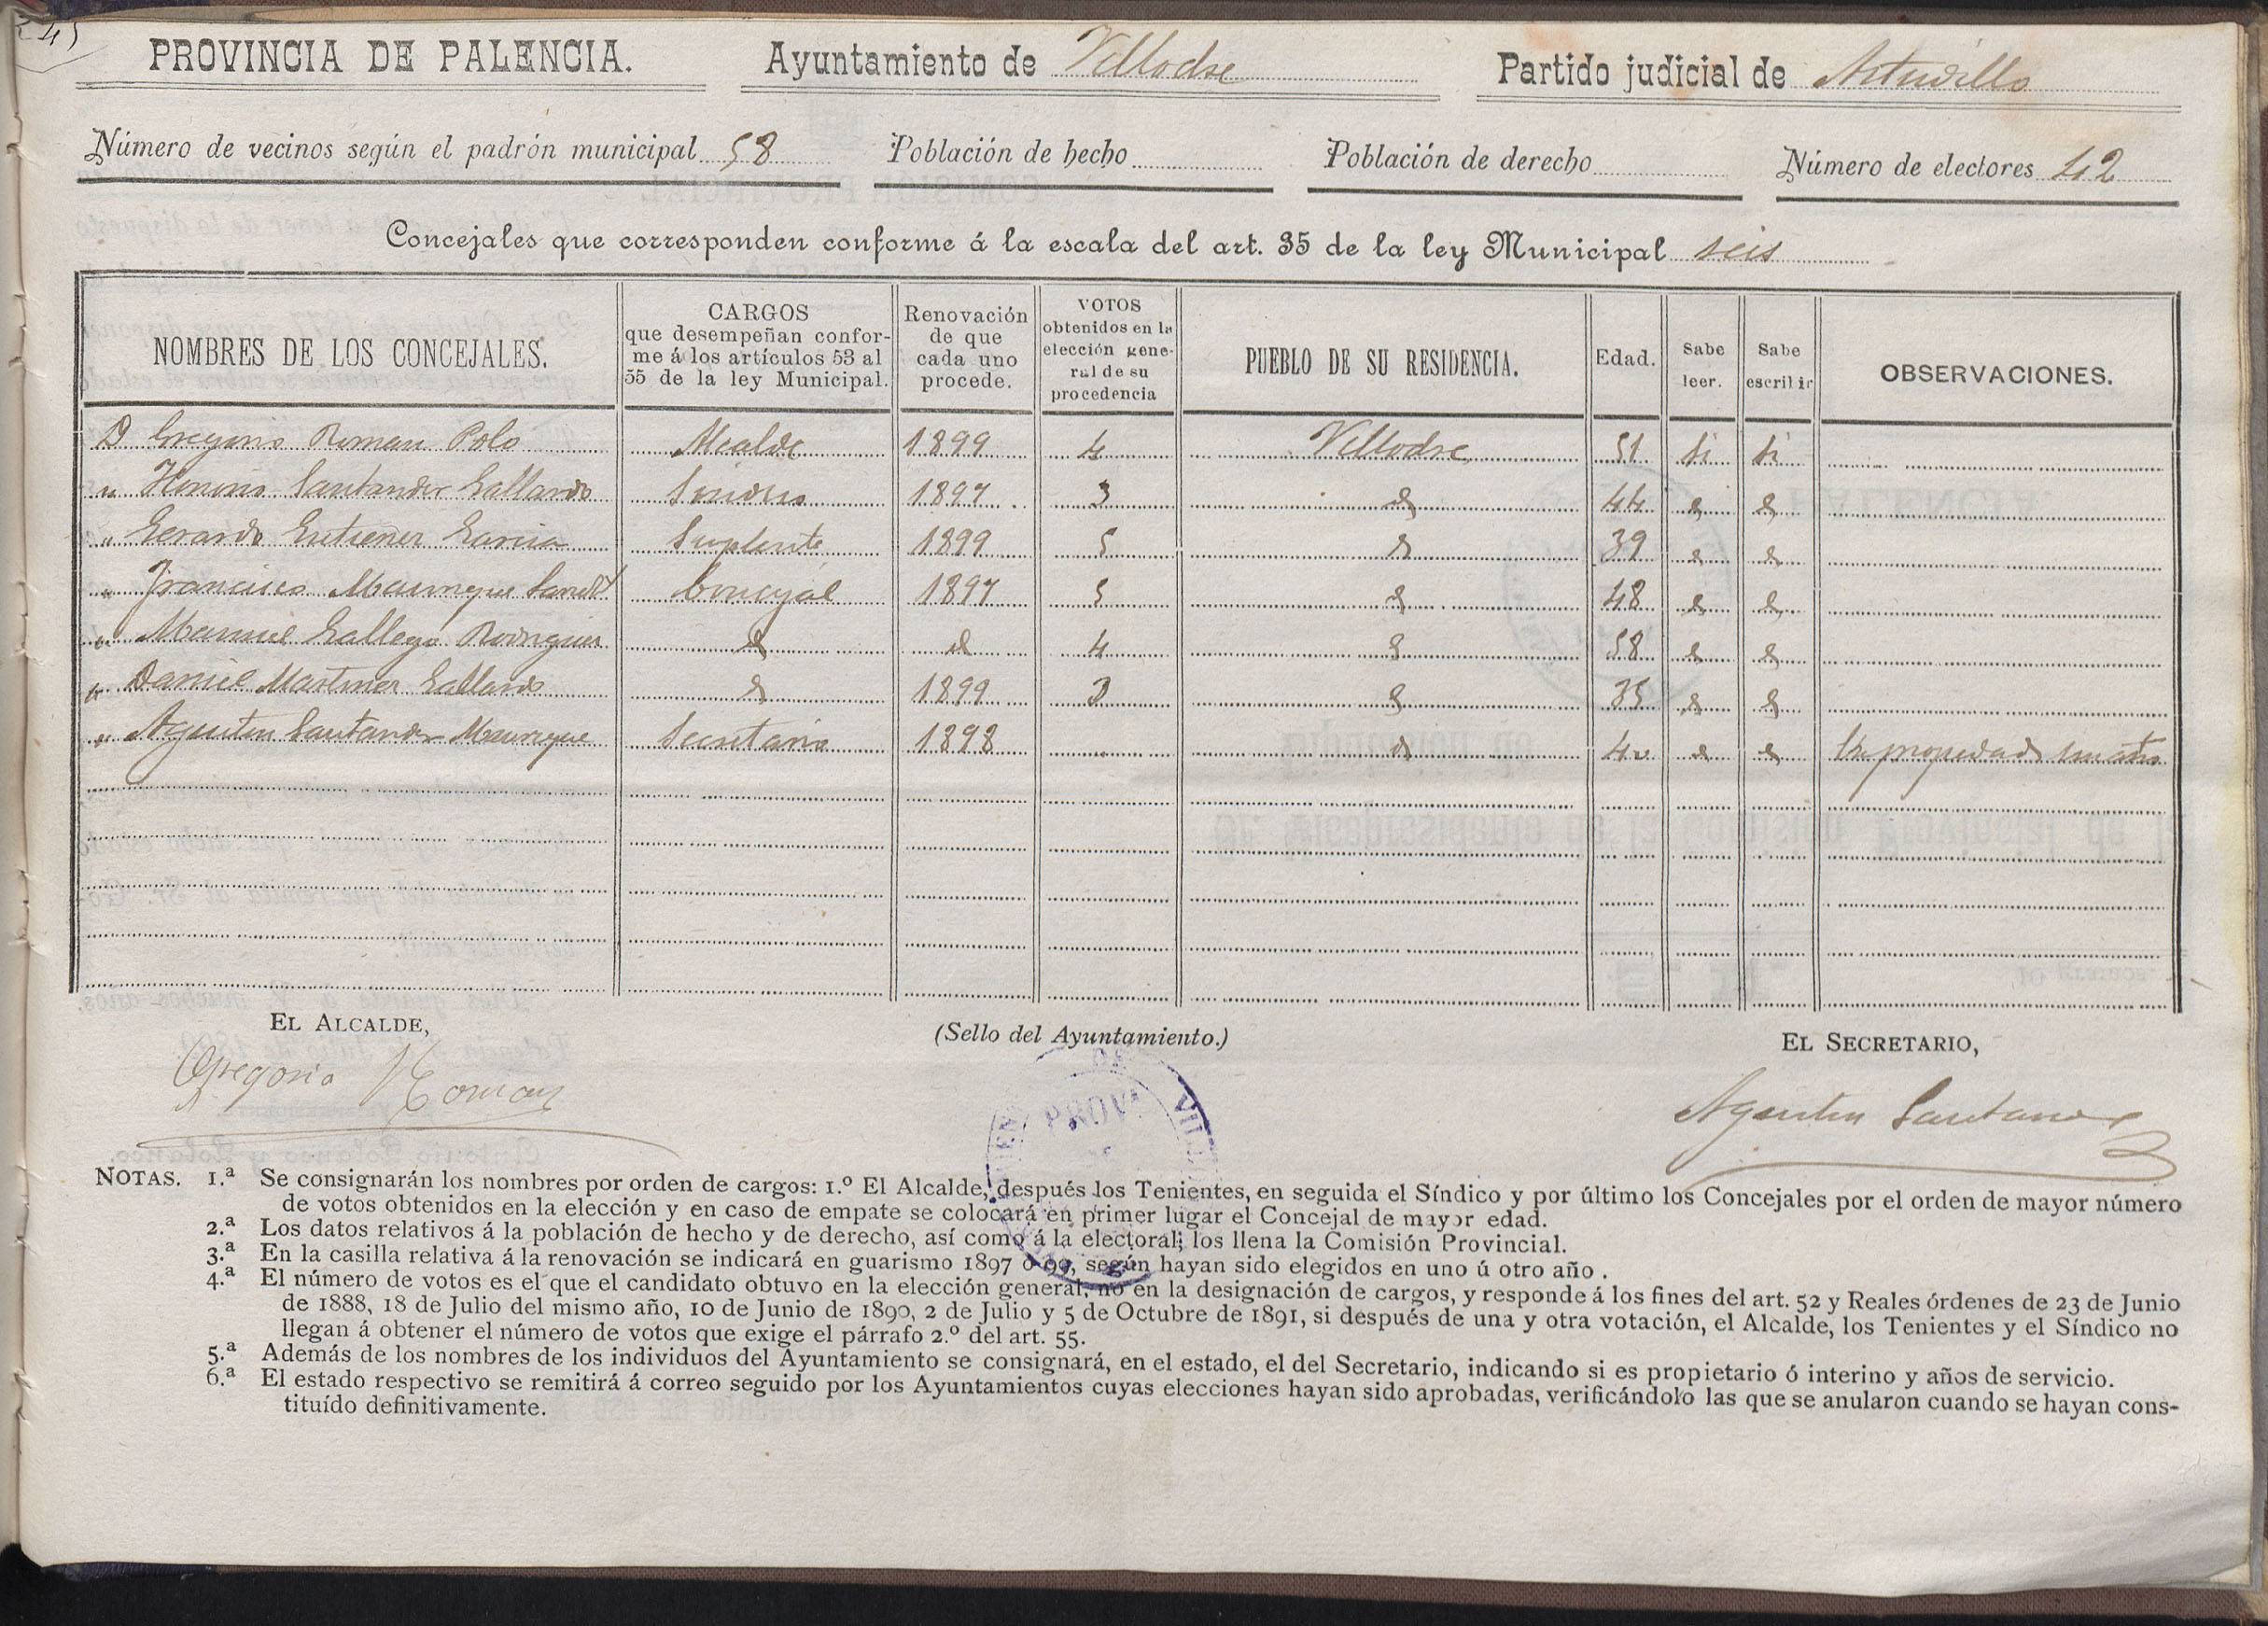 PROVINCIA DE PALENCIA. Ayuntamiento de Villodre Partido judicial de Astudillo
Número de vecinos según el padrón municipal 58 Población de hecho Población de derecho Número de electores 42
Concejales que corresponden conforme á la escala del art. 35 de la ley Municipal seis
NOMBRES DE LOS CONCEJALES. CARGOS que desempeñan conforme á los artículos 53 al 55 de la ley Municipal. Renovación de que cada uno procede. VOTOS obtenidos en la elección general de su procedencia PUEBLO DE SU RESIDENCIA. Edad. Sabe leer. Sabe escribir OBSERVACIONES.
D Gregorio Roman Polo Alcalde 1899 4 Villodre 51 si si
" Honorio Santander Gallardo Sindico 1897 3 id 44 id id
" Gerardo Gutierrez Garcia Suplente 1899 5 id 39 id id
" Francisco Manrique Concejal 1897 5 id 48 id id
" Manuel Gallego Rodriguez id id 4 id 58 id id
" Daniel Martinez Gallardo id 1899 3 id 35 id id
" Agustin Santander Manrique Secretario 1898 id 40 id id En propiedad un año
EL ALCALDE, (Sello del Ayuntamiento.) EL SECRETARIO,
Gregorio Roman Agustin Santander
NOTAS. 1.ª Se consignarán los nombres por orden de cargos: 1.º El Alcalde, después los Tenientes, en seguida el Síndico y por último los Concejales por el orden de mayor número
de votos obtenidos en la elección y en caso de empate se colocará en primer lugar el Concejal de mayor edad.
2.ª Los datos relativos á la población de hecho y de derecho, así como á la electoral; los llena la Comisión Provincial.
3.ª En la casilla relativa á la renovación se indicará en guarismo 1897 ó 99, según hayan sido elegidos en uno ú otro año.
4.ª El número de votos es el que el candidato obtuvo en la elección general, no en la designación de cargos, y responde á los fines del art. 52 y Reales órdenes de 23 de Junio
de 1888, 18 de Julio del mismo año, 10 de Junio de 1890, 2 de Julio y 5 de Octubre de 1891, si después de una y otra votación, el Alcalde, los Tenientes y el Síndico no
llegan á obtener el número de votos que exige el párrafo 2.º del art. 55.
5.ª Además de los nombres de los individuos del Ayuntamiento se consignará, en el estado, el del Secretario, indicando si es propietario ó interino y años de servicio.
6.ª El estado respectivo se remitirá á correo seguido por los Ayuntamientos cuyas elecciones hayan sido aprobadas, verificándolo las que se anularon cuando se hayan cons-
tituído definitivamente.